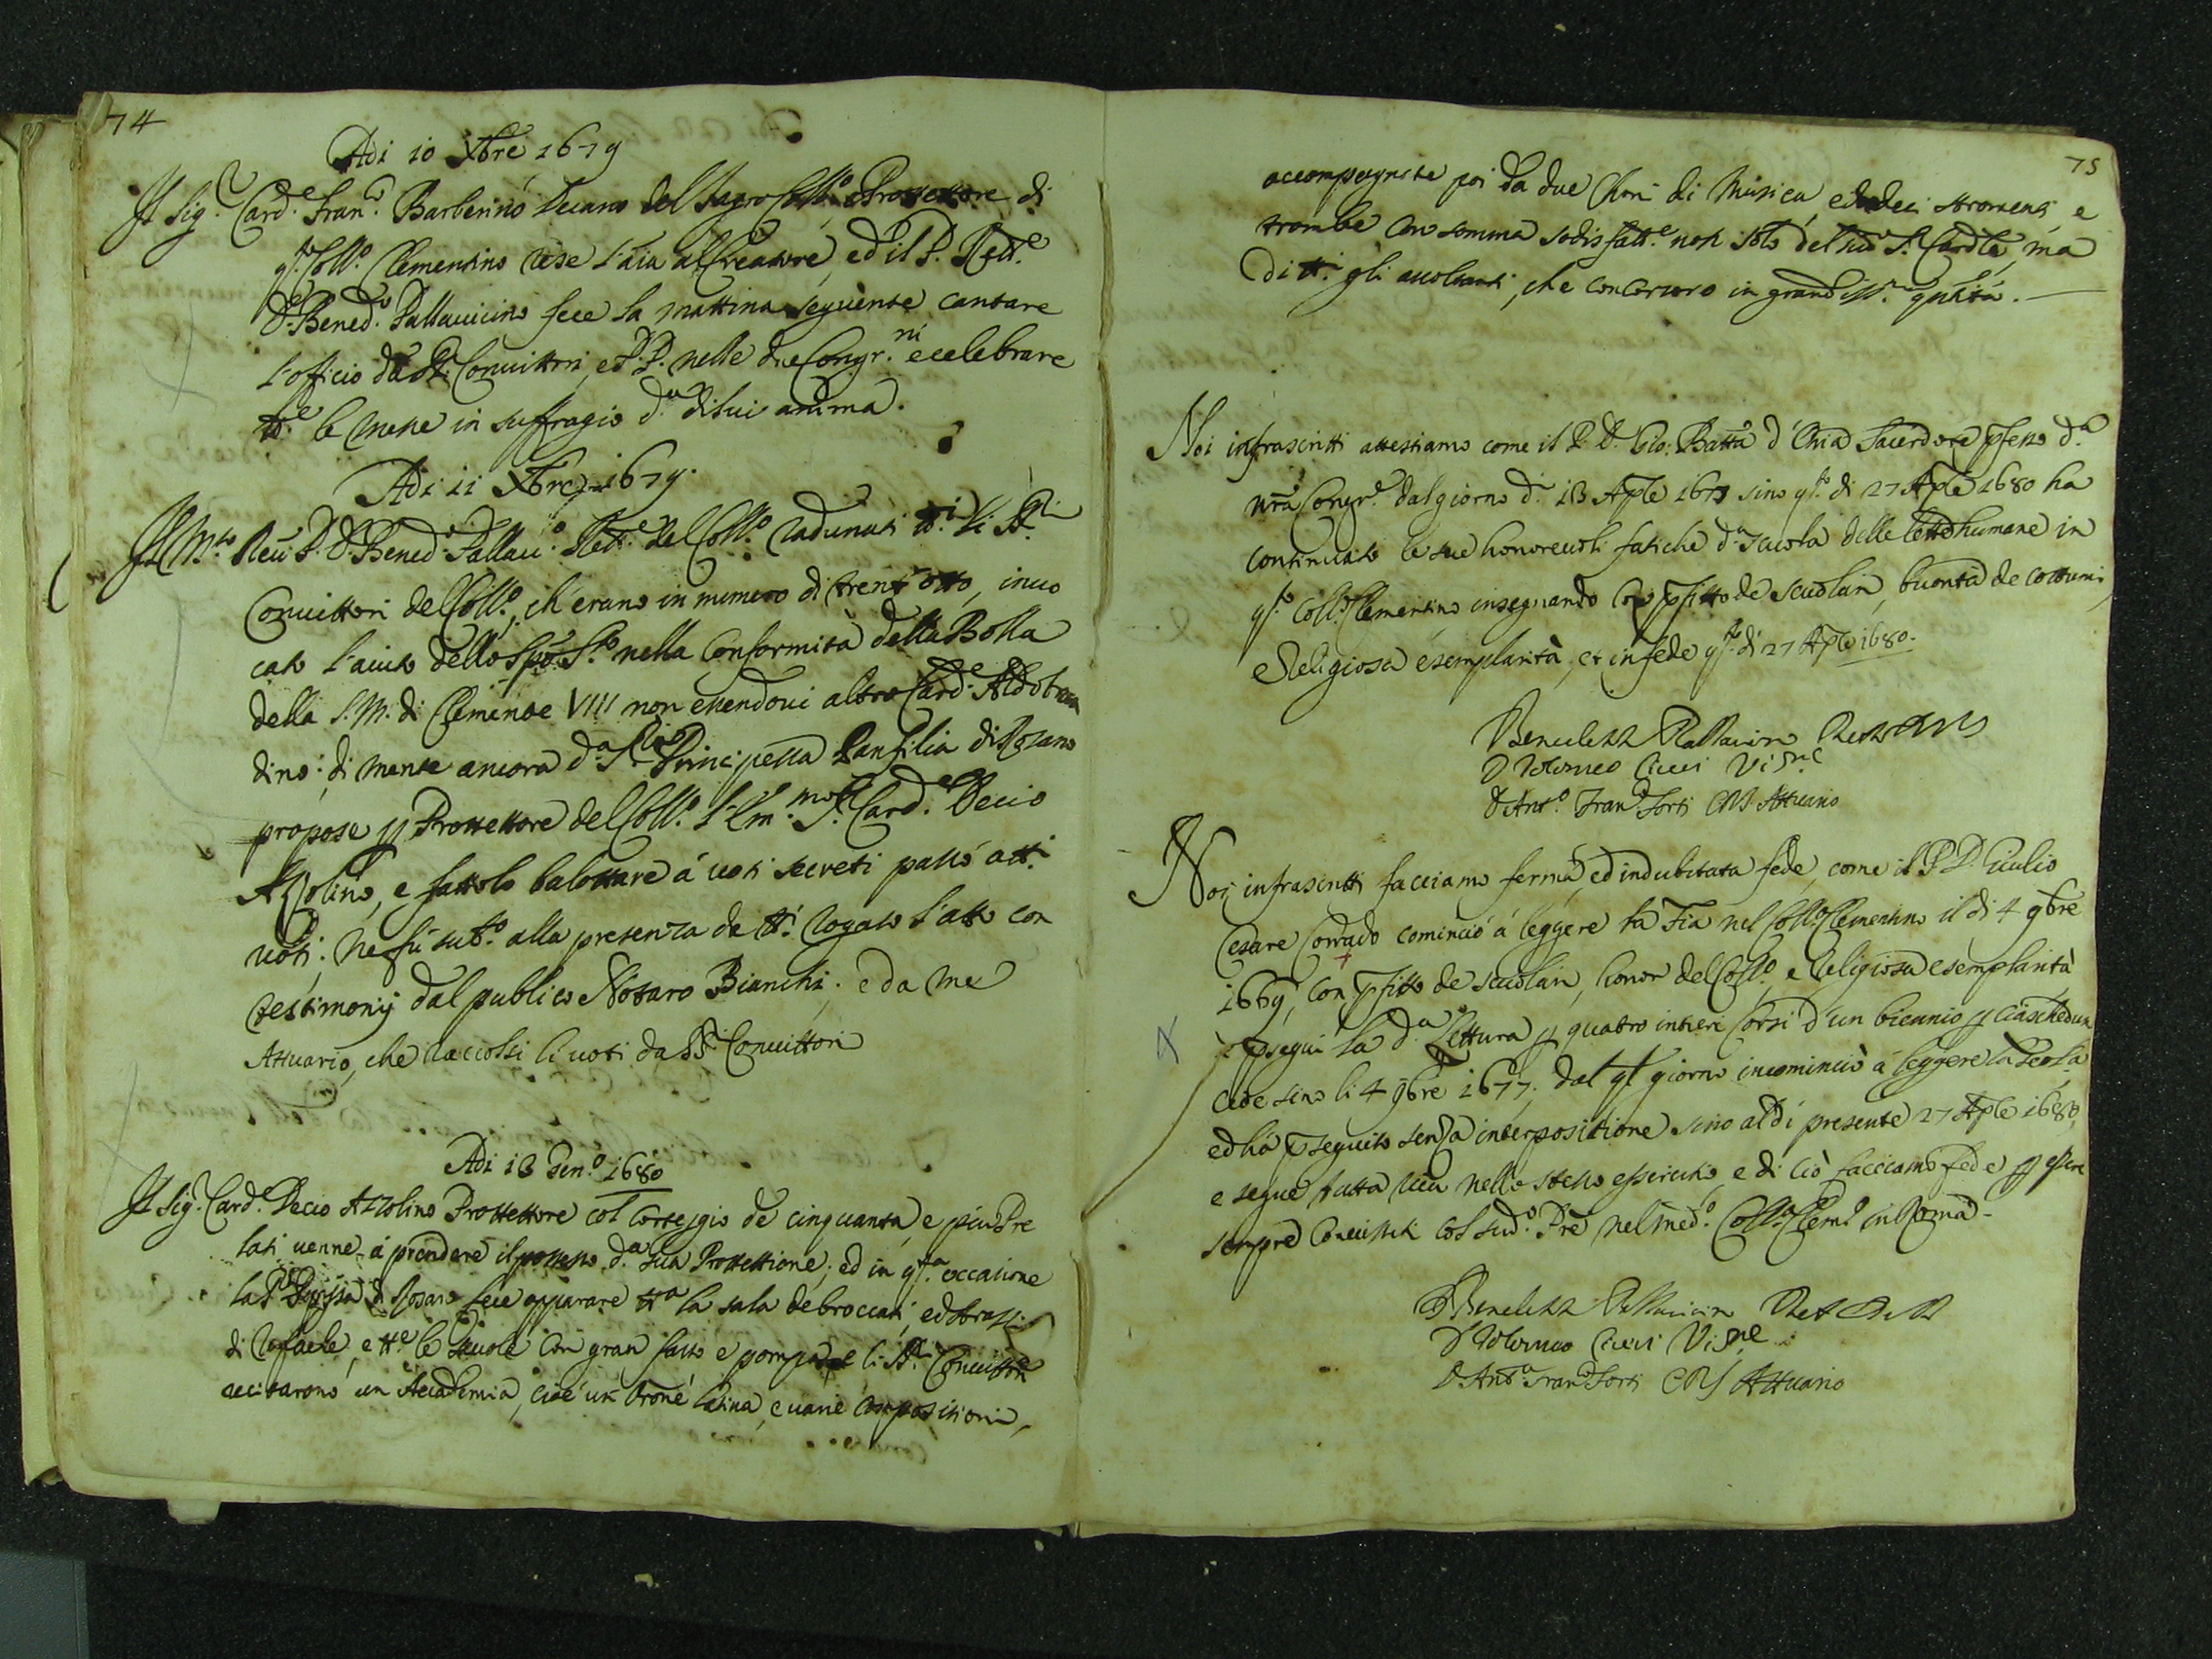 74
Adi 10 Xbre 1679
Il Sig.r Card.e Fran.o Barberino Decano del Sagro Coll.o, e Prottettore di
q.to Coll.o Clementino rese l'aĩa al Creatore, ed il P. Rett.e
D. Bened.o Pallavicino fece la mattina seguente cantare
l'officio da SS.i Convittori, e P.P. nelle due Congr.ni e celebrare
tt.e le messe in suffragio d.a di lui anima.
Adi 11 Xbre 1679.
Il M.to Reu. P. D. Bened.o Pallau.o Rett.e del Coll.o radunati tt.i li SS.ri
Conuittori del Coll.o, ch'erano in numero di trent'otto, inuo
cato l'aiuto dello Spo. S.to nella conformità della Bolla
della S.M. di Clemente VIII non essendoui altro Card.e Aldobran
dino; di mente ancora d.a S.ra Principessa Panfilia di Rosano
propose p Prottettore del Coll.o l'Em.mo S.r Card.e Decio
Azzolino, e fattolo balottare à uoti secreti passò a tt.i
uoti; ne fù sub.o alla presenza de tt.i rogato l'atto con
testimonij dal publico Notaro Bianchi; e da me
Attuario, che raccolsi li uoti da SS.i Conuittori
Adi 13 Gen.o 1680
Il Sig.r Card.e Decio Azzolino Prottettore col corteggio de cinquanta, e più Pre
lati uenne à prendere il possesso d.a sua Prottettione; ed in q.ta occasione
la di Rosano fece apparare tt.a la sala de broccati, ed Arazzi
di Rafaele, e tt.e le scuole con gran fasto e pompa, e li SS.ri Conuittori
recitarono un Accademia, cioè un Orõne latina, e uarie compositioni,
75
accompagnate poi da due Chori di Musica, ed stromenti, e
trombe con somma sodisfatt.e non solo del sud.o S.r Cardle, ma
di tt.i gli ascoltanti, che concorsero in grandiss.a qũtità.
Noi infrascritti attestiamo come il P. D. Gio: Batta d'Oria Sacerdote pfesso d.a
nrã Congr.e dal giorno d. 13 Aple 1679 sino q.to di 27 Aple 1680 ha
continuato le sue honoreuoli fatiche d.a scuola delle lettere humane in
q.to Coll.o Clementino insegnando con pfitto de scuolari, buontà de costumi,
e Religiosa esemplarità, et in fede q.to di 27 Aple 1680.
Benedetto Pallavicino Rett.
D Tolomeo Vi
D Ant.o Fran.o Forti CRS Attuario
Noi infrascritti facciamo ferma, ed indubitata fede, come il P. D. Giulio
Cesare Corrado cominciò à leggere la Fia nel Coll.o Clementino il di 4 9bre
1669, con pfitto de scuolari, honor del Coll.o, e Religiosa esemplarità
pseguì la d.a lettura p quatro intieri corsi d'un biennio p ciascheduno
cioè sino li 4 9bre 1677, dal ql giorno incominciò à leggere la Teol.a
ed hà pseguito senza interpositione sino al dì presente 27 Aple 1680,
e segue tutta uia nello stesso essercitio, e di ciò facciamo fede p essere
sempre conuissuti col sud.o Pre nel med.o Coll.o Clem.o in Roma
D Benedetto Pallavicino Rett.
D Tolomeo Vi
D. Ant.o Fran.o Forti CRS Attuario